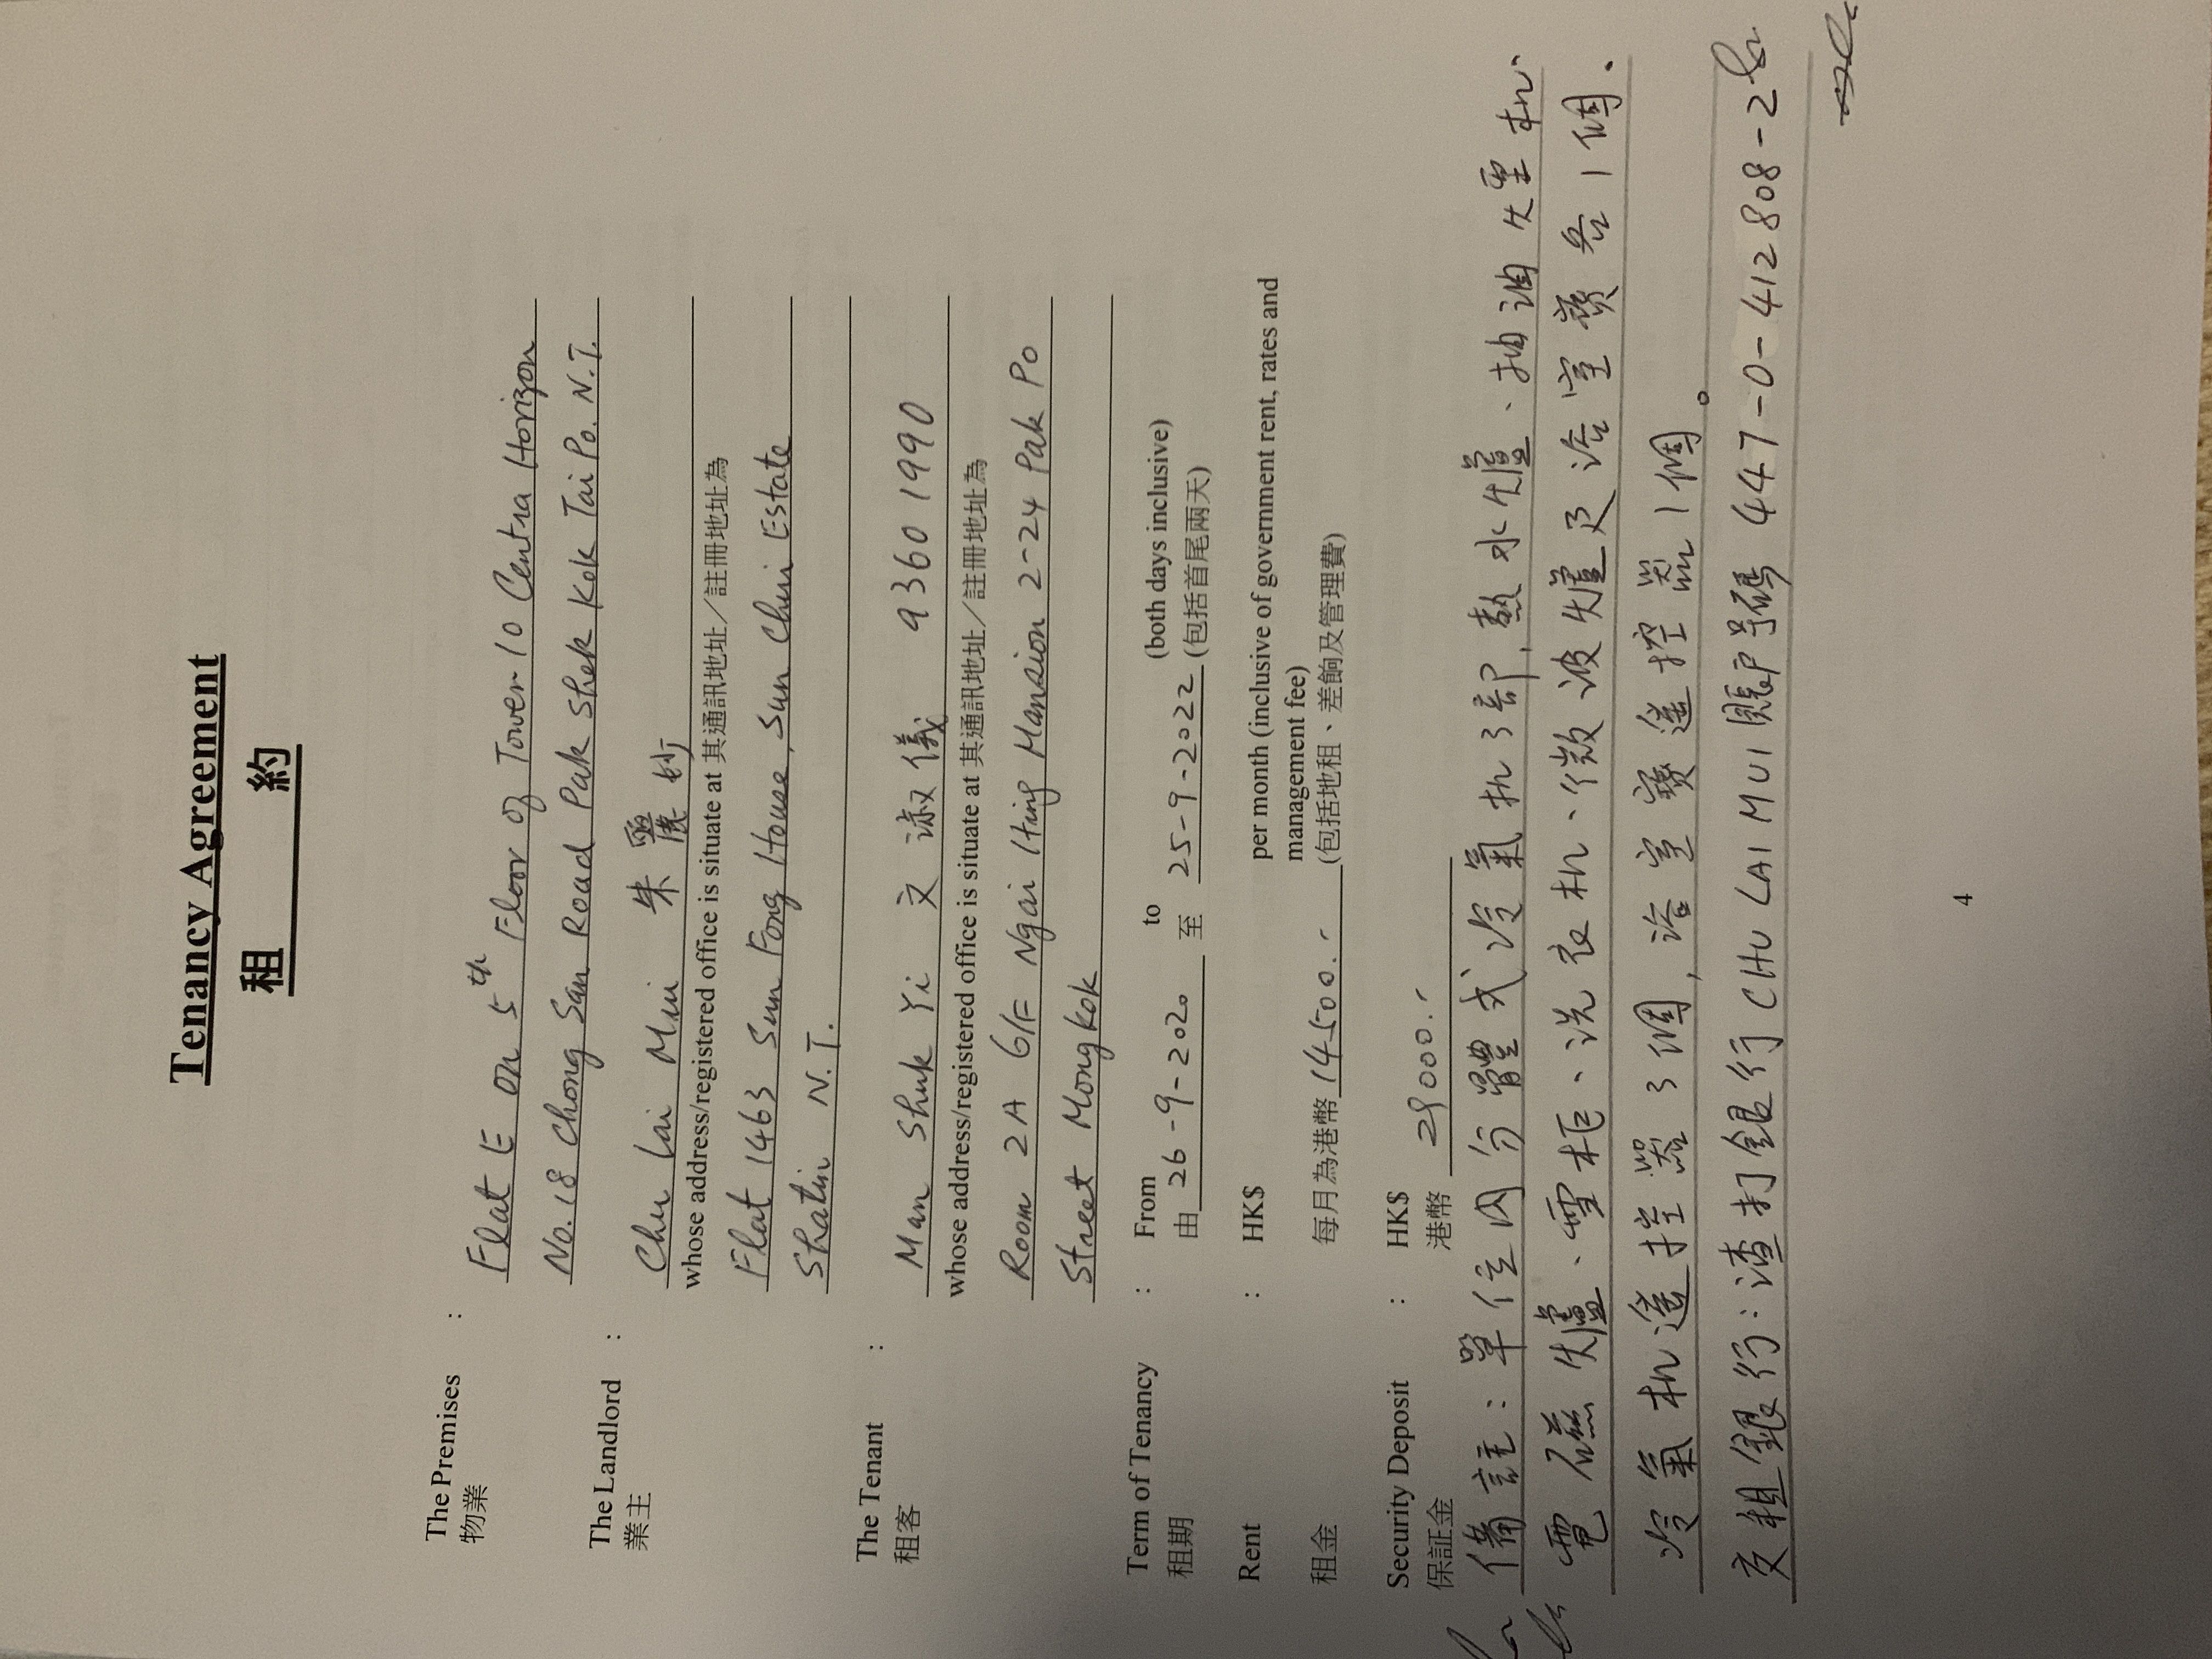 Tenancy Agreement
租 約
The Premises : Flat E on 5th Floor of Tower 10 Centra Horizon
物業
No. 18 Chong San Road Pak Shek Kok Tai Po. N.T.
The Landlord : Chu Lai Mui 朱麗妙
業主
whose address/registered office is situate at 其通訊地址／註冊地址為
Flat 1463 Sun Fong House, Sun Chui Estate
Shatin N.T.
The Tenant : Man Shuk Yi 文淑儀 9360 1990
租客
whose address/registered office is situate at 其通訊地址／註冊地址為
Room 2A 6/F Ngai Hing Mansion 2-24 Pak Po
Street Mongkok
Term of Tenancy : From to (both days inclusive)
租期 由 26-9-2020 至 25-9-2022 (包括首尾兩天)
Rent : HK$ per month (inclusive of government rent, rates and
management fee)
租金 每月為港幣 14500.- (包括地租、差餉及管理費)
Security Deposit : HK$
保証金 港幣 29000.-
備註：單位內分體式冷氣机3部，熱水爐、抽油烟机
電磁爐、雪柜、洗衣机、微波爐及浴室寶各1個、
冷氣机遙控器3個，浴室寶遙控器1個。
交租銀行：渣打銀行 CHU LAI MUI 賬戶號碼 447-0-412808-2
4